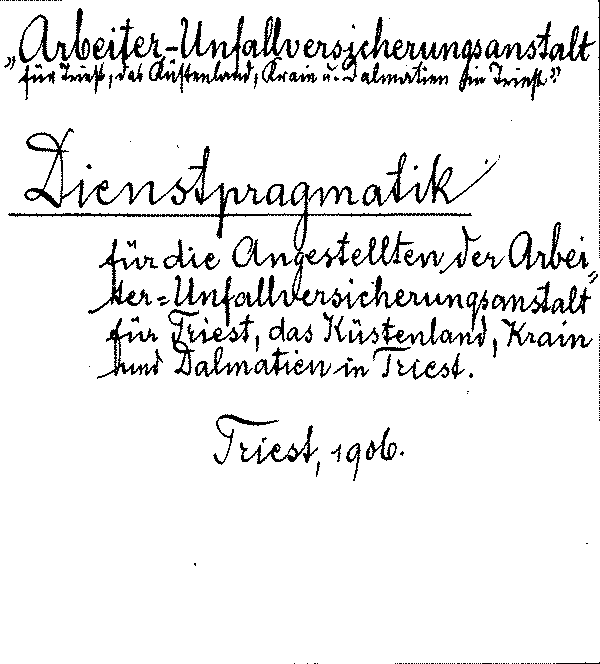 „Arbeiter-Unfallversicherungsanstalt
für Triest, das Küstenland, Krain u. Dalmatien in Triest"
Dienstpragmatik
für die Angestellten der Arbei„
ter=Unfallversicherungsanstalt
für Triest, das Küstenland, Krain
und Dalmatien in Triest.
Triest, 1906.